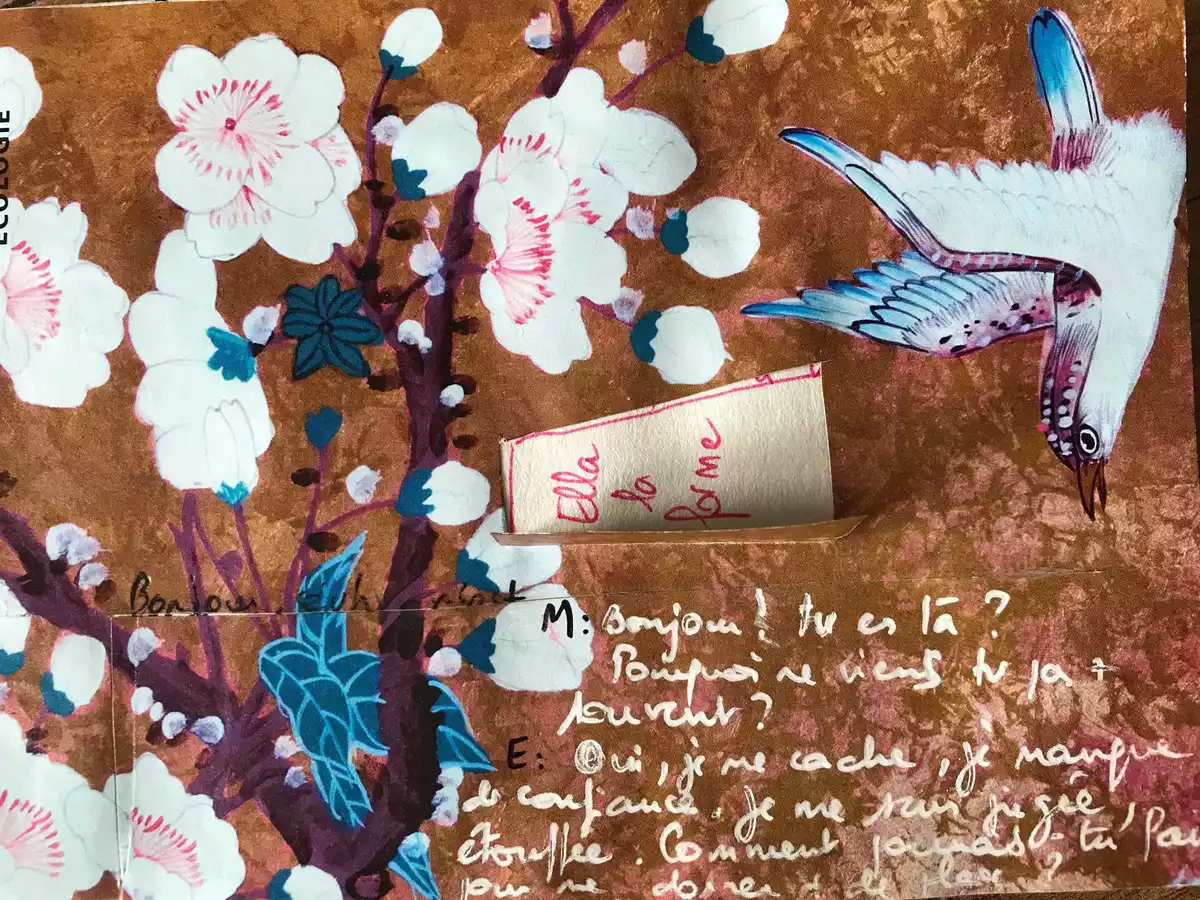 ECOLOGIE
Ella
la
forme
Bonjour
M: Bonjour! tu es là ?
Pourquoi ne viens tu pa +
souvent ?
E: Oui, je me cache, je manque
de confiance. Je me sens jugée,
étouffée. Comment pourrais-tu
pour me donner + de place ?